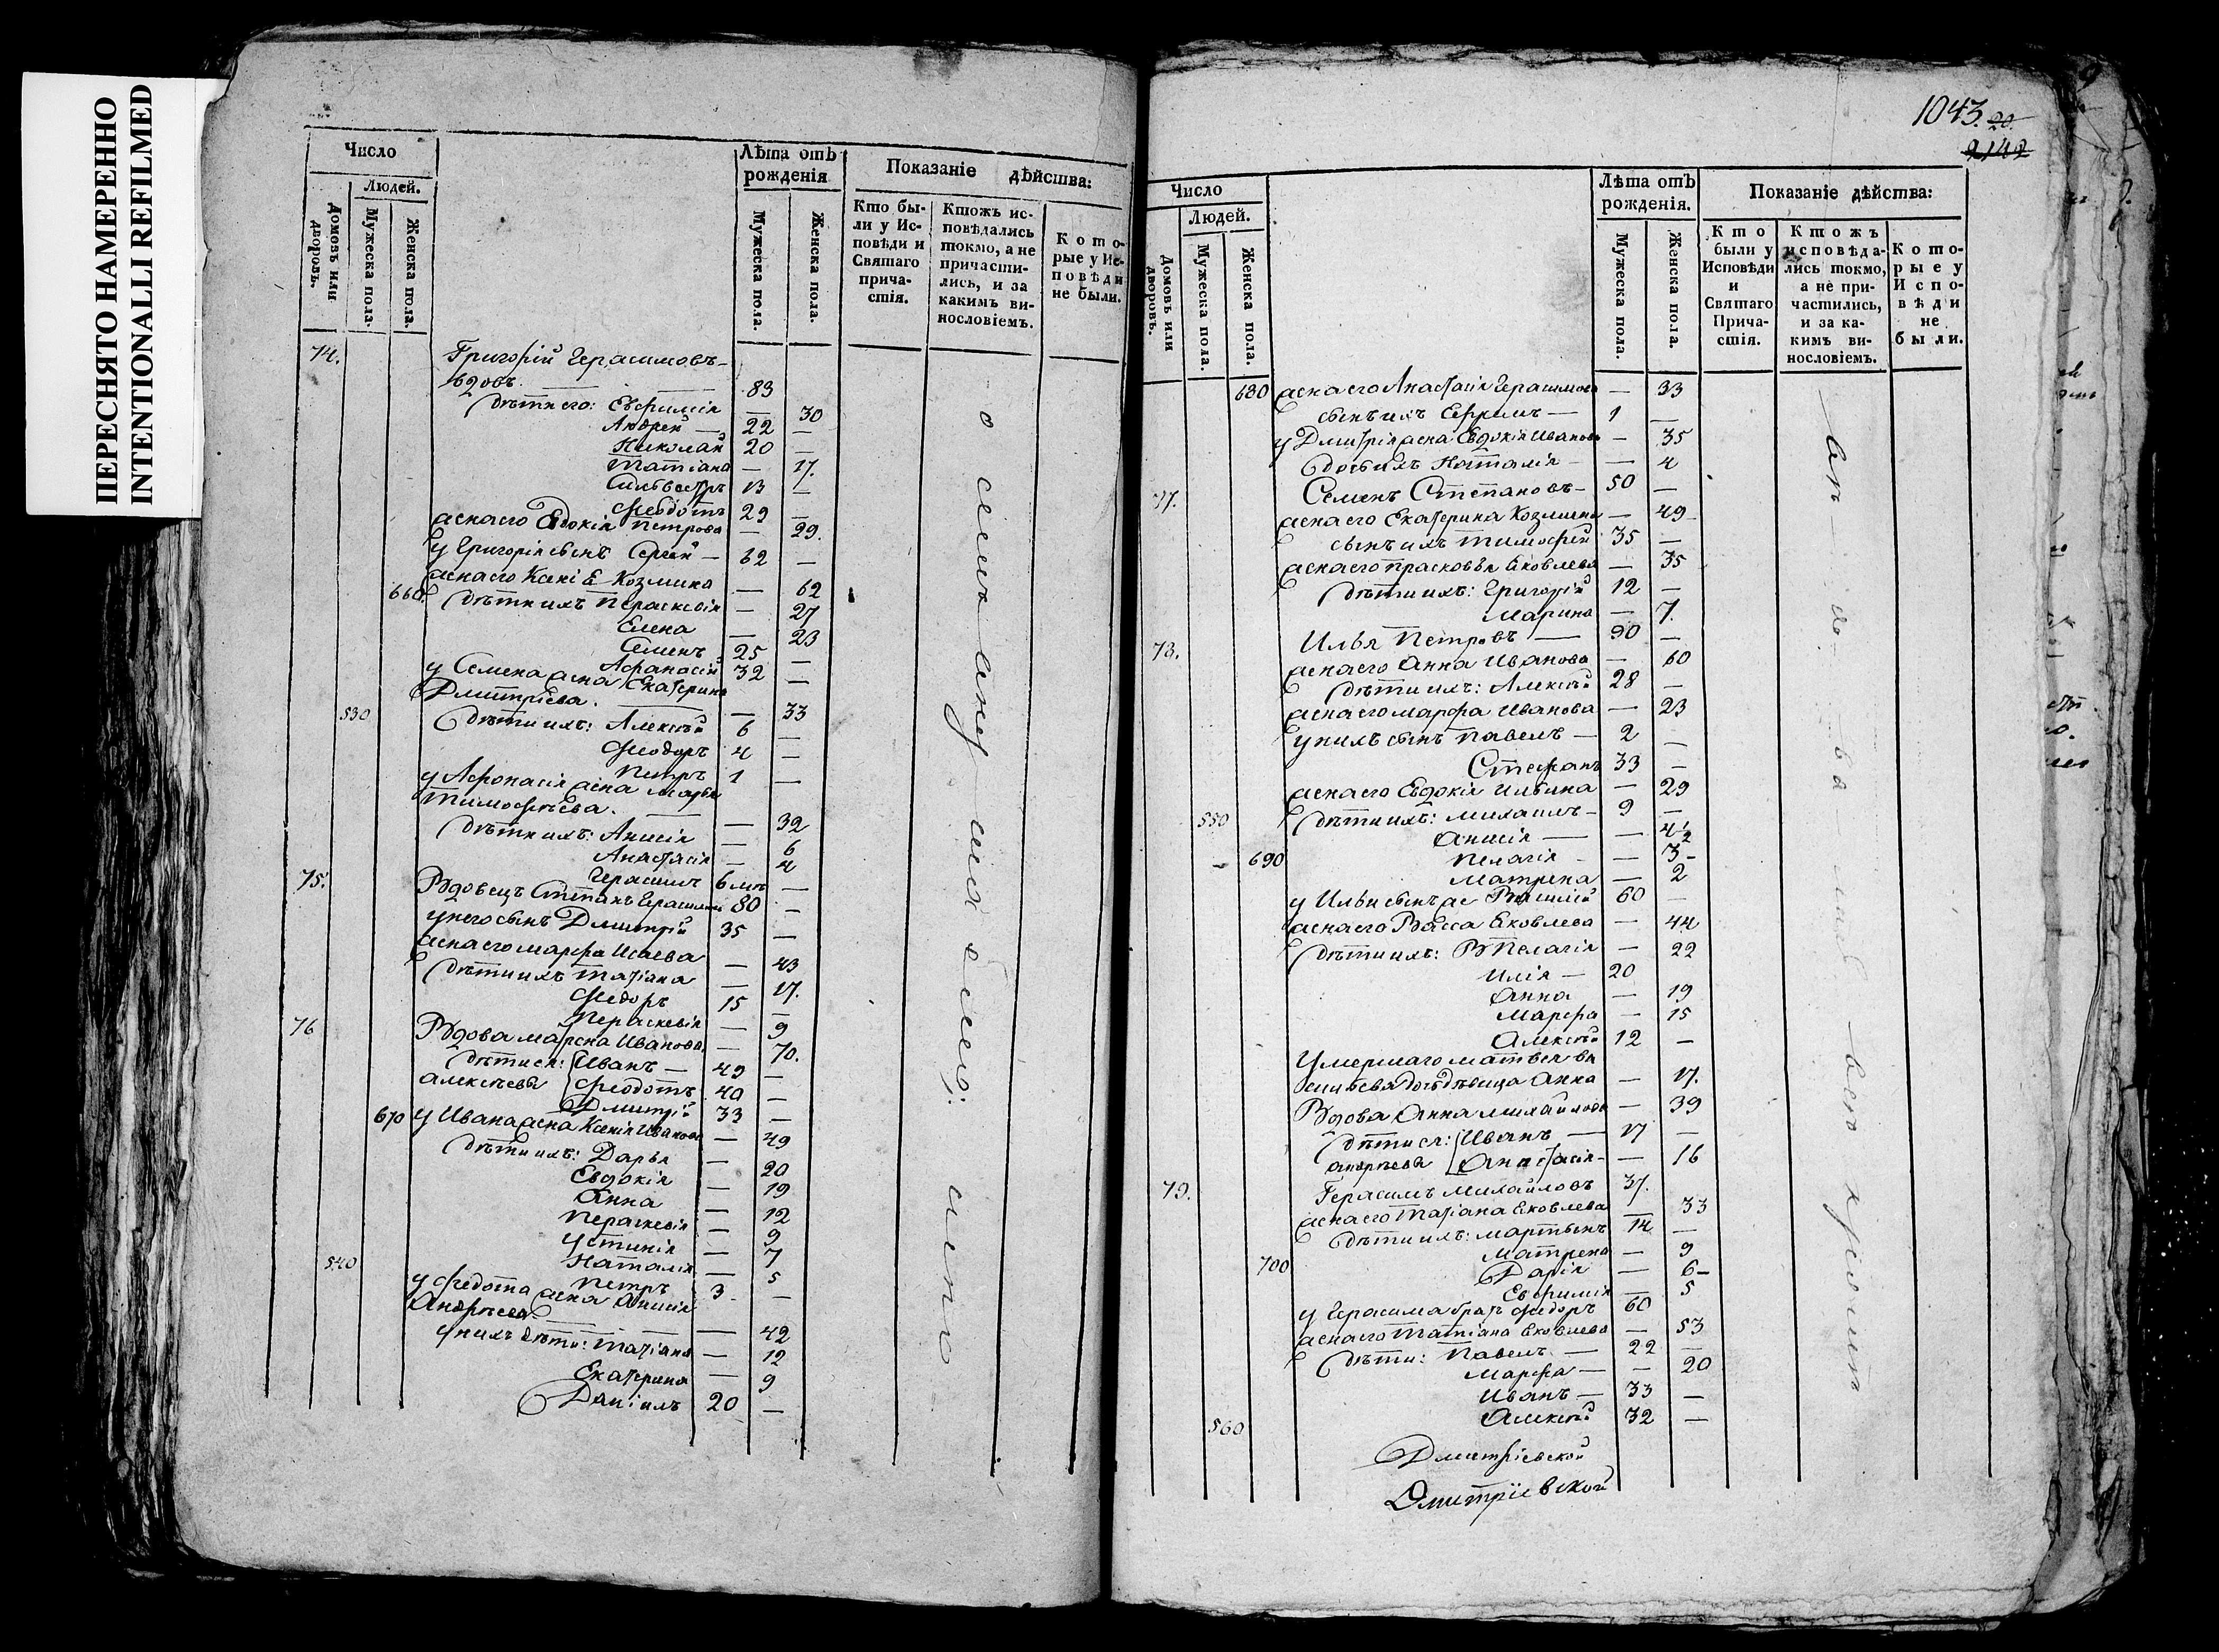 ПЕРЕСНЯТО НАМЕРЕННО
INTENTIONALLI REFILMED
Число
Людей.
Домовъ или дворовъ.
Мужеска пола.
Женска пола.
Лѣта отъ рожденія
Мужеска пола.
Женска пола.
Показаніе дѣйства:
Кто бы-
ли у Ис-
повѣди и
Святаго
прича-
стія.
Ктожъ ис-
повѣдались
токмо, а не
причасти-
лись, и за
какимъ ви-
нословіемъ.
Кото-
рые у Ис-
повѣди
не были.
74. Григорій Герасимовъ
вдовъ. — 83
дѣти его: Евфимія — 30
Андрей — 22 —
Николай 20 —
Татіана — 17.
Сильвестръ 13 —
Феодотъ 29 —
жена его Евдокія Петрова — 29.
у Григорія сынъ Сергей — 62 —
жена его Ксенія Козмина — 62
660. дѣти ихъ Параскевія — 27
Елена — 23
Семенъ 25 —
Афанасій 32 —
у Семена жена Екатерина
Дмитріева. — 33
530 дѣти ихъ: Алексѣй 6 —
Феодоръ 4 —
Петръ 1 —
у Афонасія жена Марья
Тимофѣева. — 32
дѣти ихъ: Анисія — 6
Анастасія — 4
Герасимъ 6 мѣ —
75. Вдовецъ Степанъ Герасимовъ 80 —
у него сынъ Дмитрій 35 —
жена его Марфа Исаева — 43
дѣти ихъ Татіана — 17.
Федоръ 15 —
Параскевія — 9
76 Вдова Марфа Иванова — 70.
дѣти ея: Иванъ — 49 —
Алексѣевы Феодотъ 40 —
Дмитрій 33 —
670 у Ивана жена Ксенія Иванова — 49
дѣти ихъ: Дарья — 20
Евдокія — 19
Анна — 12
Параскевія — 9
Устинія — 7
Наталія — 5
540 Петръ 3 —
у Федота жена Анисія
Андрѣева — 42
у нихъ дѣти: Татіана — 12
Екатерина — 9
Даніилъ 20 —
1043. 20.
2142
Число
Людей.
Домовъ или дворовъ.
Мужеска пола.
Женска пола.
Лѣта отъ рожденія.
Мужеска пола.
Женска пола.
Показаніе дѣйства:
Кто
были у
Исповѣди
и
Святаго
Прича-
стія.
Ктожъ
исповѣда-
лись токмо,
а не при-
частились,
и за ка-
кимъ ви-
нословіемъ.
Кото-
рые у
Испо-
вѣди
не
были.
680 жена его Анастасія Герасимова — 33
сынъ ихъ Ефремъ — 1 —
у Дмитрія жена Евдокія Иванова — 35
дочь ихъ Наталія — 4
77. Семенъ Степановъ — 50 —
жена его Екатерина Козмина — 49
сынъ ихъ Тимофей 35 —
жена его Прасковья Яковлева — 35
дѣти ихъ: Григорій 12 —
Марина — 7.
78. Илья Петровъ — 90 —
жена его Анна Иванова — 60
дѣти ихъ: Алексѣй 28 —
жена его Марфа Иванова — 23
у нихъ сынъ Павелъ — 2 —
Стефанъ 33 —
жена его Евдокія Ильина — 29
550 дѣти ихъ: Михаилъ 9 —
Анисія — 4½
690 Пелагія — 3
Матрена — 2
у Ильи сынъ Василій 60 —
жена его Васса Яковлева — 44
дѣти ихъ: Пелагія — 22
Илія — 20
Анна — 19
Марфа — 15
Алексѣй 12 —
Умершаго Матвея
дочь дѣвица Анна — 17.
Вдова Анна Михайлова — 39
дѣти ея: Иванъ — 17 —
Андрѣевы Анастасія — 16
79. Герасимъ Михайловъ 37.
жена его Татіана Яковлева — 33
дѣти ихъ: Мартынъ 14 —
Матрена — 9
700 Дарія — 6
Евфимія — 5
у Герасима братъ Федоръ 60 —
жена его Татіана Яковлева — 53
дѣти: Павелъ — 22 —
Марфа — 20
Иванъ — 33 —
560 Алексѣй 32 —
Дмитріевской
Дмитріевской